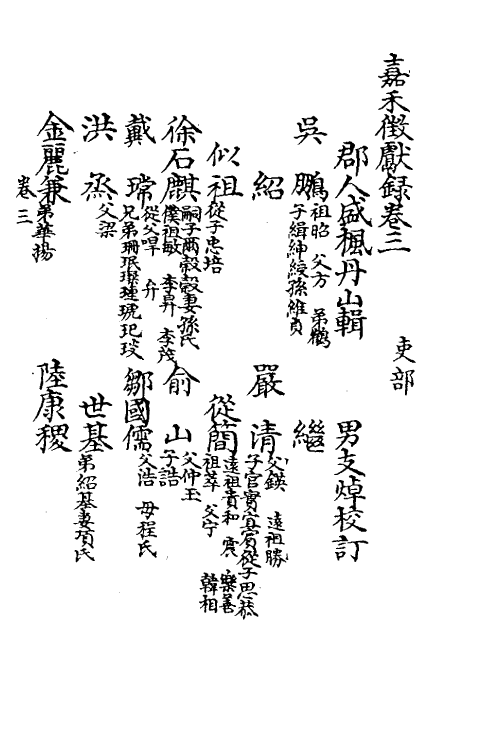 嘉禾徵獻録卷三　吏部
郡人盛楓丹山輯　男支焯校訂
吳鵬 祖昭 父方 弟鶴 子緝紳綬孫維貞
紹　繼
嚴清 父鍈 遠祖勝 子官實寘賓從子思恭
似祖 從子忠培
從簡 遠祖貴和 震 樂善 祖萃 父宁 韓相
徐石麒 嗣子爾穀穀妻孫氏 僕祖敏 李昇 李茂
俞山 父仲玉 子誥
戴㻞 從父㬇 弁 兄弟珊珉璨璉琥玘
鄒國儒 父浩 母程氏
洪烝 父梁
世基 弟紹基妻項氏
金麗兼 弟華揚
陸康稷
卷三